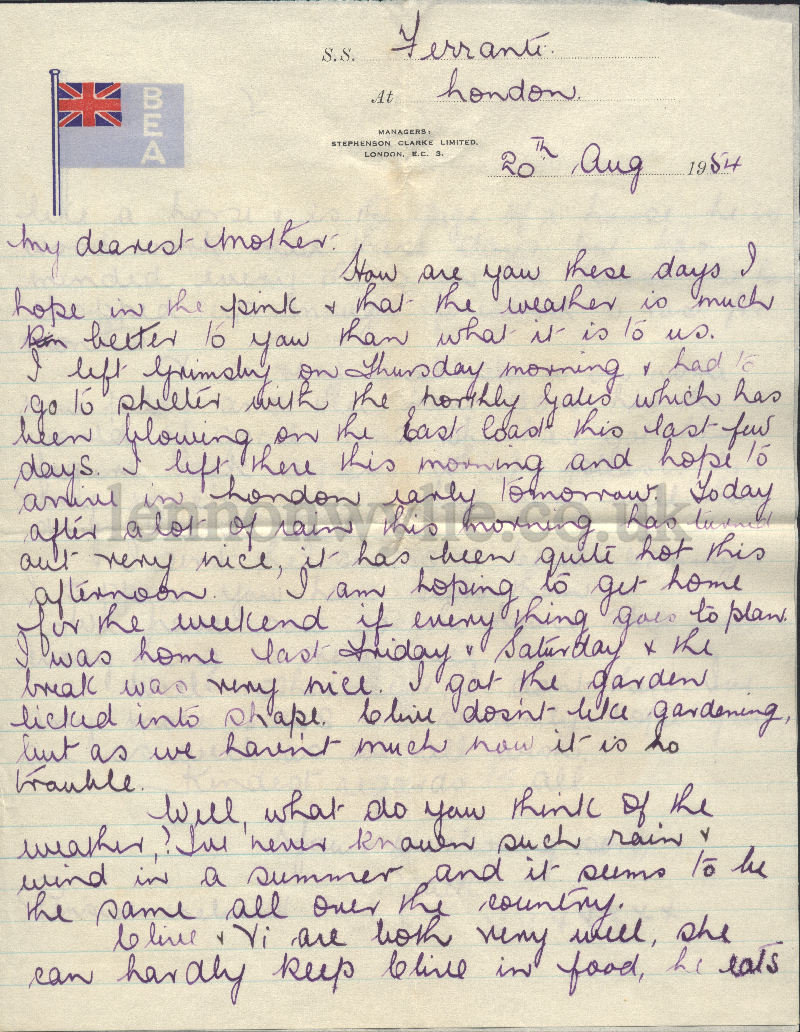 S.S. Ferranti.
At London.
BEA
MANAGERS:
STEPHENSON CLARKE LIMITED.
LONDON, E.C. 3.
20th Aug 1954
My dearest Mother.
How are you these days I
hope in the pink & that the weather is much
better to you than what it is to us.
I left Grimsby on Thursday morning & had to
go to shelter with the northly Gales which has
been blowing on the East Coast this last few
days. I left there this morning and hope to
arrive in London early tomorrow. Today
after a lot of rain this morning has turned
out very nice, it has been quite hot this
afternoon. I am hoping to get home
for the weekend if every thing goes to plan.
I was home last Friday & Saturday & the
break was very nice. I got the garden
licked into shape. Clive dosn't like gardening,
but as we haven't much now it is no
trouble.
Well, what do you think of the
weather,? I've never known such rain &
wind in a summer and it seems to be
the same all over the country.
Clive & Vi are both very well, she
can hardly keep Clive in food, he eats
lennonwylie.co.uk